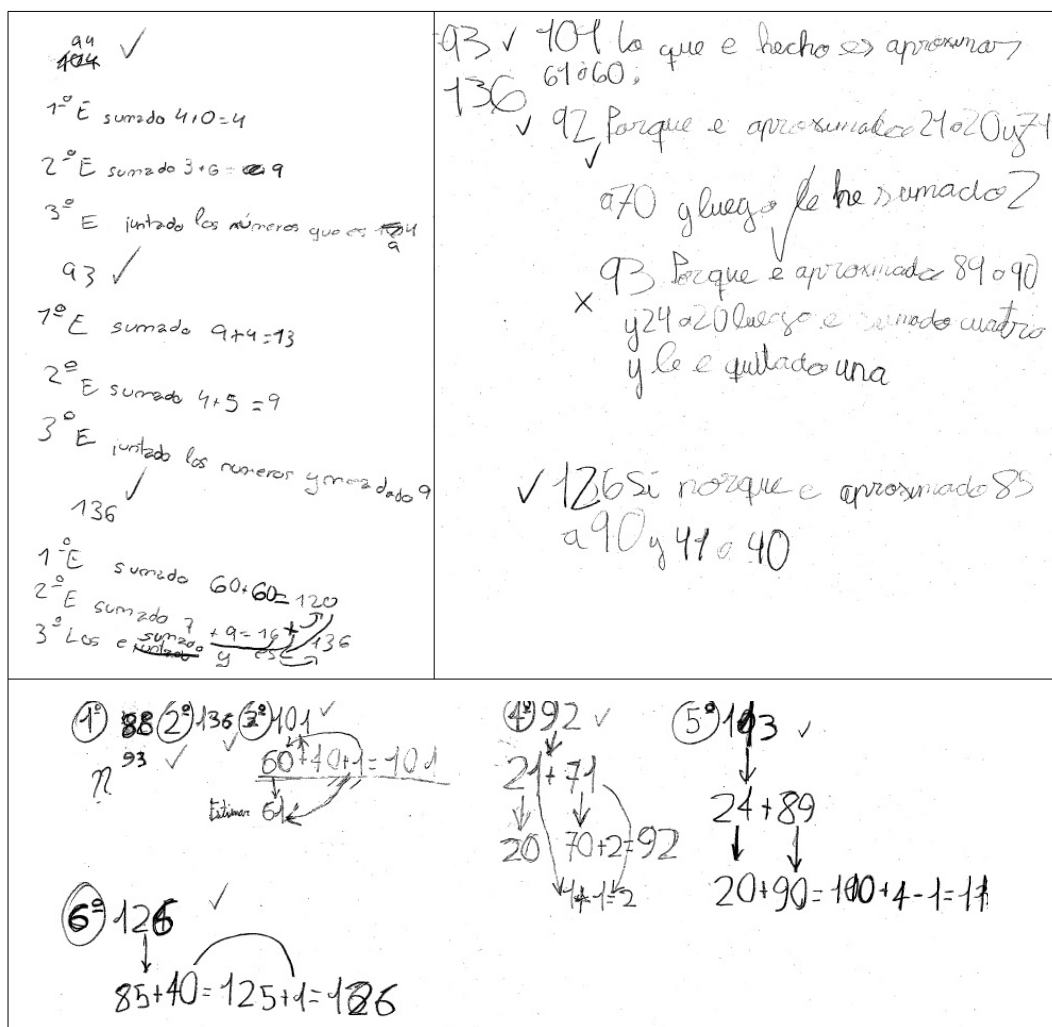 94
1º E sumado 4+0=4
2º E sumado 3+6= 9
3º E juntado los números que es 4
9
93
1º E sumado 9+4=13
2º E sumado 4+5=9
3º E juntado los numeros y me a dado 9
136
1º E sumado 60+60=120
2º E sumado 7+9=16
3º Los e sumado y es 136
93 101 lo que e hecho es aproximar
136 61 a 60;
92 Porque e aproximado 21 a 20 y 71
a 70 y luego le he sumado 2
93 Porque e aproximado 89 a 90
y 24 a 20 luego e sumado cuatro
y le e quitado una
126 Si porque e aproximado 85
a 90 y 41 a 40
1º 88 2º 136 3º 101
93
60+40+1=101
Estimar 61
4º 92
21+71
20 70+2=92
1+1=2
5º 113
24+89
20+90=110+4-1=11
6º 126
85+40=125+1=126